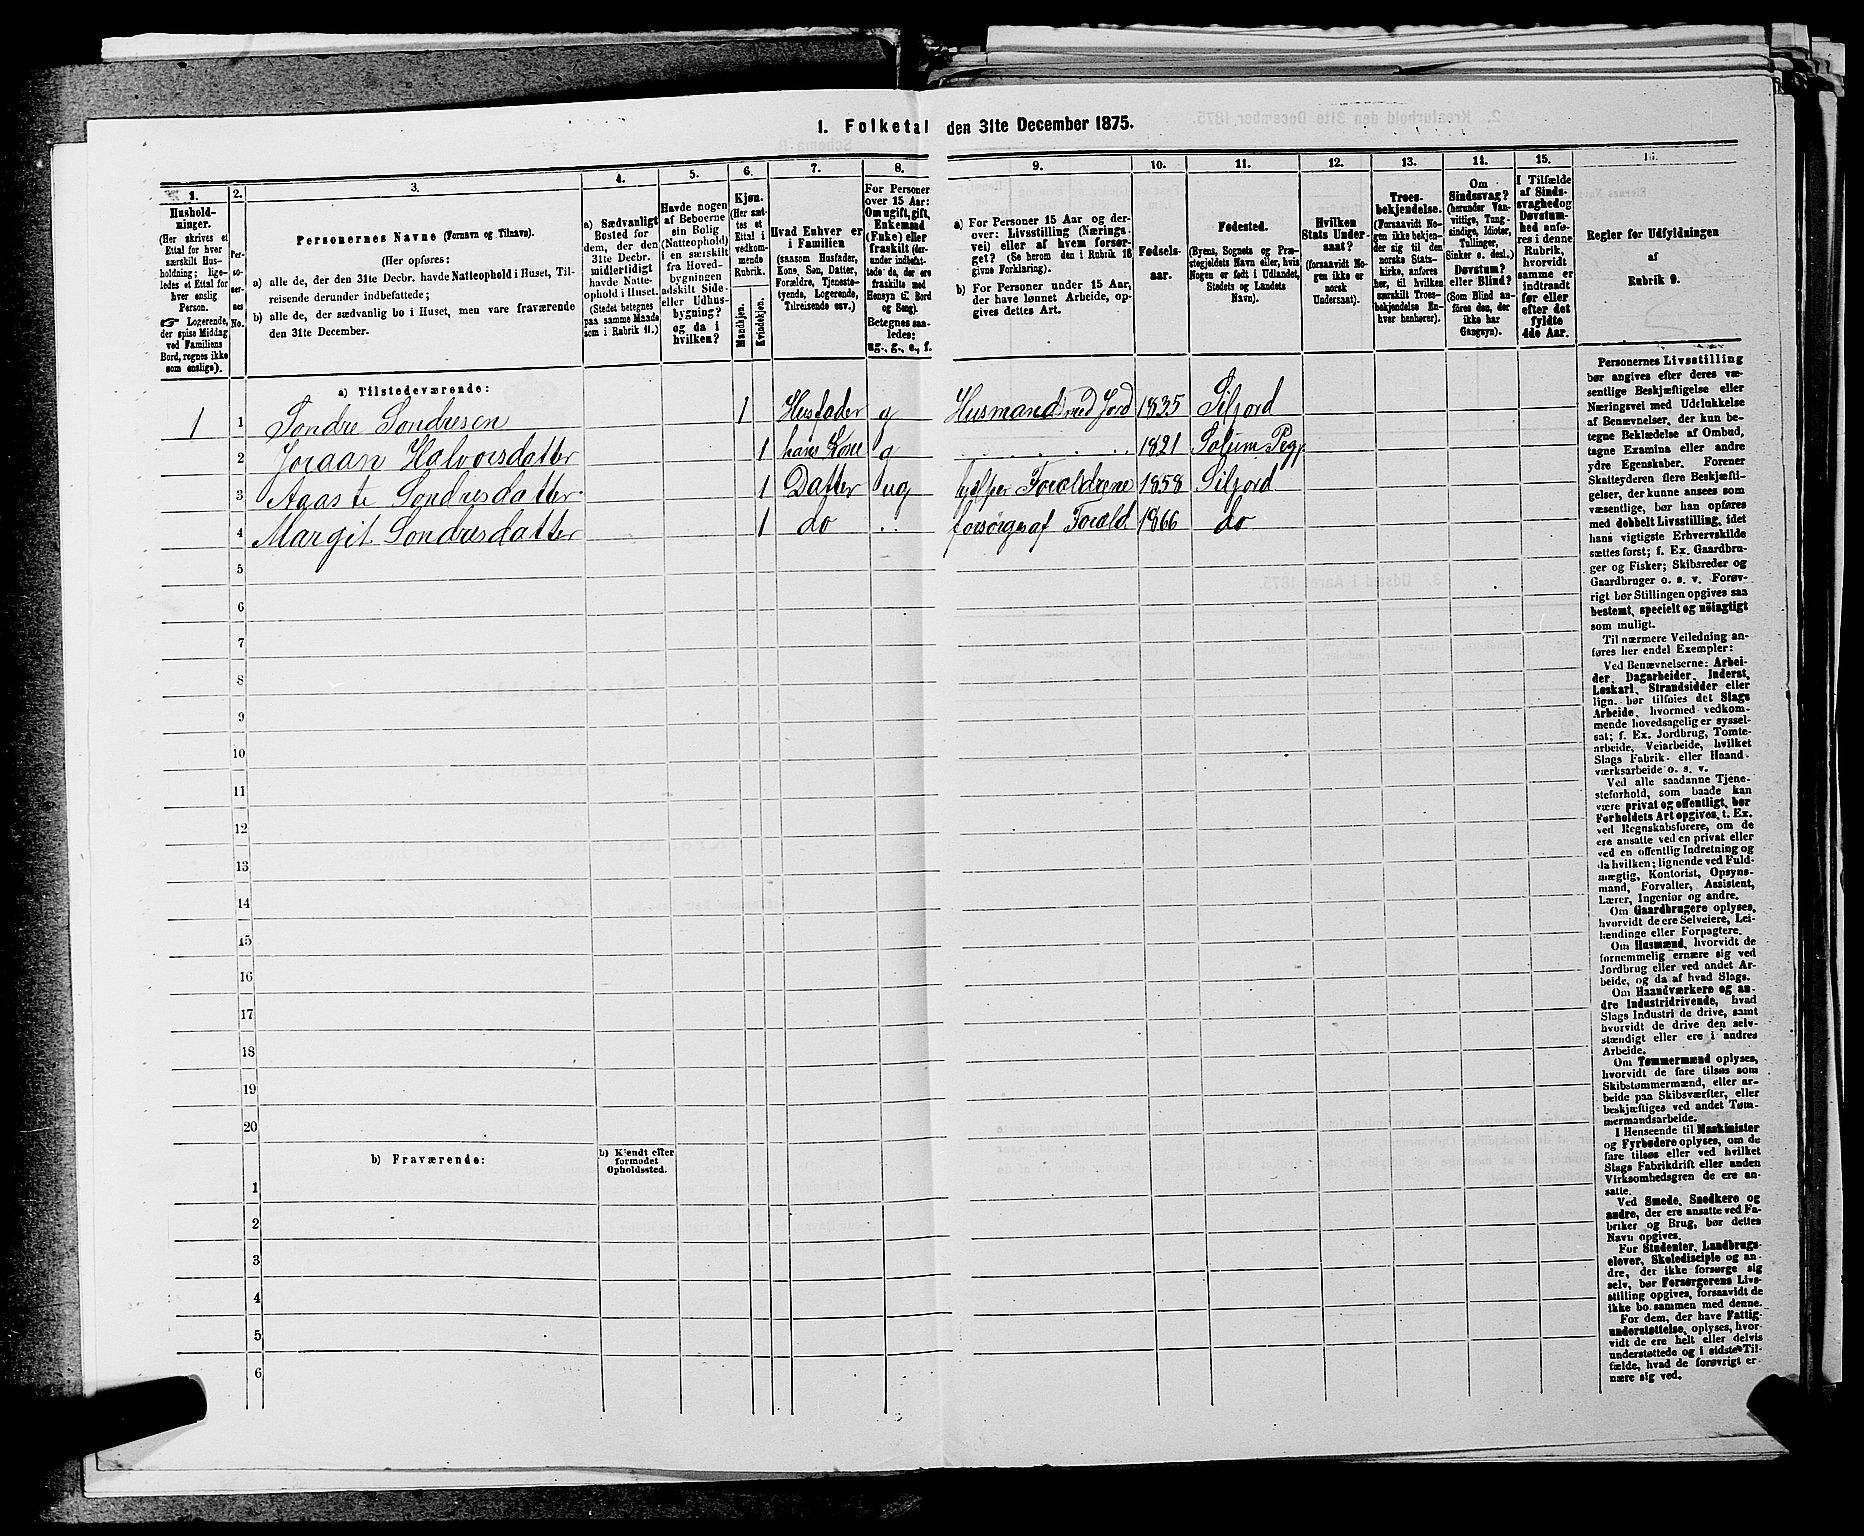 1. Folketal den 31te December 1875.
1. 2. 3. 4. 5. 6. 7. 8. 9. 10. 11. 12. 13. 14. 15. 16.
Hushold-
ninger.
(Her skrives et
Ettal for hver
særskilt Hus-
holdning; lige-
ledes et Ettal for
hver enslig
Person.
☞ Logerende,
der spise Middag
ved Familiens
Bord, regnes ikke
som enslige).
Per-
so-
ner-
nes
No.
Personernes Navne (Fornavn og Tilnavn).
(Her opføres:
a) alle de, der den 31te Decbr. havde Natteophold i Huset, Til-
reisende derunder indbefattede;
b) alle de, der sædvanlig bo i Huset, men vare fraværende
den 31te December.
a) Sædvanligt
Bosted for
dem, der den
31te Decbr.
midlertidigt
havde Natte-
ophold i Huset.
(Stedet betegnes
paa samme Maade
som i Rubrik 11.)
Havde nogen
af Beboerne
sin Bolig
(Natteophold)
i en særskilt
fra Hoved-
bygningen
adskilt Side-
eller Udhus-
bygning?
og da i
hvilken?
Kjøn.
(Her sæt-
tes et
Ettal i
vedkom-
mende
Rubrik.
Mandkjøn.
Kvindekjøn.
Hvad Enhver er
i Familien
(saasom Husfader,
Kone, Søn, Datter,
Forældre, Tjeneste-
tyende, Logerende,
Tilreisende osv.)
For Personer
over 15 Aar:
Om ugift, gift,
Enkemand
(Enke) eller
fraskilt (der-
under indbefat-
tede de, der ere
fraskilte med
Hensyn til Bord
og Seng).
Betegnes saa-
ledes:
ug., g., e., f.
a) For Personer 15 Aar og der-
over: Livsstilling (Nærings-
vei) eller af hvem forsør-
get? (Se herom den i Rubrik 16
givne Forklaring).
b) For Personer under 15 Aar,
der have lønnet Arbeide, op-
gives dettes Art.
Fødsels-
aar.
Fødested.
(Byens, Sognets og Præ-
stegjeldets Navn eller, hvis
Nogen er født i Udlandet,
Stedets og Landets
Navn).
Hvilken
Stats Under-
saat?
(forsaavidt No-
gen ikke er
norsk
Undersaat).
Troes-
bekjendelse.
(Forsaavidt No-
gen ikke bekjen-
der sig til den
norske Stats-
kirke, anføres
her, til hvilken
særskilt Troes-
bekjendelse En-
hver henhører).
Om
Sindssvag?
(herunder Van-
vittige, Tung-
sindige, Idioter,
Tullinger,
Sinker o. desl.)
Døvstum?
eller Blind?
(Som Blind an-
føres den, der
ikke har
Gangsyn).
I Tilfælde
af Sinds-
svaghed og
Døvstum-
hed anfø-
res i denne
Rubrik,
hvorvidt
samme er
indtraadt
før eller
efter det
fyldte
4de Aar.
Regler for Udfyldningen
af
Rubrik 9.
a) Tilstedeværende:
1 1 Søndre Søndresen 1 Husfader g Husmand med Jord 1835 Siljord
2 Joraan Halvorsdatter 1 hans Kone g 1821 Solum Pgj
3 Aaste Søndresdatter 1 Datter ug hjelper Forældrene 1858 Siljord
4 Margit Søndresdatter 1 do .. forsørges af Foræld. 1866 do
5
6
7
8
9
10
11
12
13
14
15
16
17
18
19
20
b) Fraværende:
b) Kjendt efter
formodet
Opholdssted.
1
2
3
4
5
6
Personernes Livsstilling
bør angives efter deres væ-
sentlige Beskjæftigelse eller
Næringsvei med Udelukkelse
af Benævnelser, der kun be-
tegne Beklædelse af Ombud,
tagne Examina eller andre
ydre Egenskaber. Forener
Skatteyderen flere Beskjæfti-
gelser, der kunne ansees som
væsentlige, bør han opføres
med dobbelt Livsstilling, idet
hans vigtigste Erhvervskilde
sættes først; f. Ex. Gaardbru-
ger og Fisker; Skibsreder og
Gaardbruger o. s. v. Forøv-
rigt bør Stillingen opgives saa
bestemt, specielt og nöiagtigt
som muligt.
Til nærmere Veiledning an-
føres her endel Exempler:
Ved Benævnelserne: Arbei-
der, Dagarbeider, Inderst,
Løskarl, Strandsidder eller
lign. bør tilføies det Slags
Arbeide, hvormed vedkom-
mende hovedsagelig er syssel-
sat; f. Ex. Jordbrug, Tomte-
arbeide, Veiarbeide, hvilket
Slags Fabrik- eller Haand-
værksarbeide o. s. v.
Ved alle saadanne Tjene-
steforhold, som baade kan
være privat og offentligt, bør
Forholdets Art opgives, t. Ex.
ved Regnskabsførere, om de
ere ansatte ved en privat eller
ved en offentlig Indretning og
da hvilken; lignende ved Fuld-
mægtig, Kontorist, Opsyns-
mand, Forvalter, Assistent,
Lærer, Ingeniør og andre.
Om Gaardbrugere oplyses,
hvorvidt de ere Selveiere, Lei-
lændinge eller Forpagtere.
Om Husmænd, hvorvidt de
fornemmelig ernære sig ved
Jordbrug eller ved andet Ar-
beide, og da af hvad Slags.
Om Haandværkere og an-
dre Industridrivende, hvad
Slags Industri de drive, samt
hvorvidt de drive den selv-
stændigt eller ere i andres
Arbeide.
Om Tømmermænd oplyses,
hvorvidt de fare tilsøs som
Skibstømmermænd, eller ar-
beide paa Skibsværfter, eller
beskjæftiges ved andet Tøm-
mermandsarbeide.
I Henseende til Maskinister
og Fyrbødere oplyses, om de
fare tilsøs eller ved hvilket
Slags Fabrikdrift eller anden
Virksomhedsgren de ere an-
satte.
Ved Smede, Snedkere og
andre, der ere ansatte ved Fa-
briker og Brug, bør dettes
Navn opgives.
For Studenter, Landbrugs-
elever, Skoledisciple og an-
dre, der ikke forsørge sig
selv, bør Forsørgerens Livs-
stilling opgives, forsaavidt de
ikke bo sammen med denne.
For dem, der have Fattig-
understøttelse, oplyses, hvor-
vidt de ere helt eller delvis
understøttede og i sidste Til-
fælde, hvad de forøvrigt er-
nære sig ved.